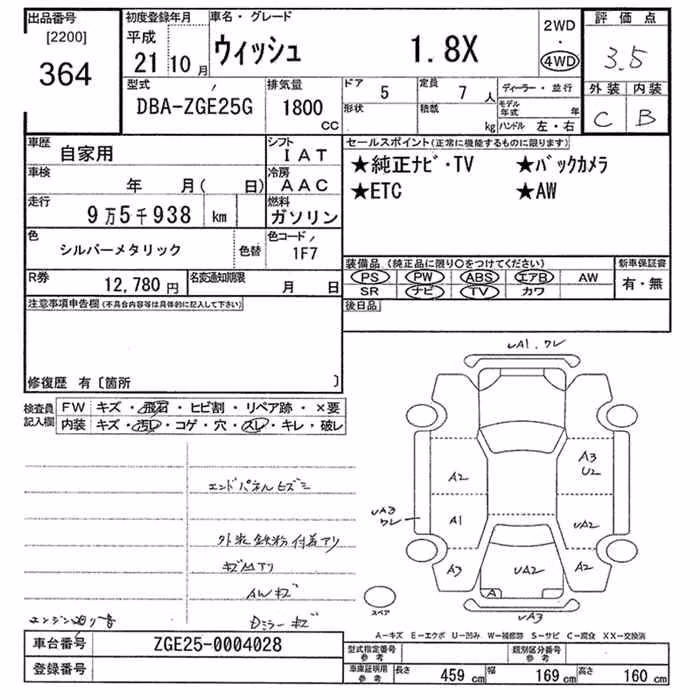 出品番号
[2200]
364
初度登録年月
平成
21 10月
車名・グレード
ウィッシュ 1.8X
2WD
・
4WD
評価点
3.5
外装 内装
C B
型式
DBA-ZGE25G
排気量
1800
CC
ドア 5
定員 7人
形状
積載 kg
ディーラー・並行
モデル年式 年
ハンドル 左・右
車歴
自家用
シフト
IAT
車検
年 月( 日)
冷房
AAC
走行
9万5千938 km
燃料
ガソリン
色
シルバーメタリック
色替
色コード
1F7
R券
12,780円
名変通知期限
月 日
セールスポイント(正常に機能するものに限ります)
★純正ナビ・TV ★バックカメラ
★ETC ★AW
装備品(純正品に限り○をつけてください)
PS PW ABS エアB AW
SR ナビ TV カワ
新車保証書
有・無
後日品
注意事項申告欄(不具合内容等は具体的に記入して下さい)
修復歴 有〔箇所 〕
検査員記入欄
FW キズ・飛石・ヒビ割・リペア跡・×要
内装 キズ・汚レ・コゲ・穴・スレ・キレ・破レ
エンドパネルヒズミ
外装鉄粉付着アリ
キズ凹アリ
AWキズ
Dミラーキズ
エンジン廻り音
UA1.ワレ
A3
U2
A2
UA3
ワレ
A1
UA2
A3
UA2
A2
A
UA3
スペア
A-キズ E-エクボ U-凹み W-補修跡 S-サビ C-腐食 XX-交換済
車台番号 ZGE25-0004028
登録番号
型式指定番号
参考
類別区分番号
参考
車庫証明用
参考
長さ 459cm 幅 169cm 高さ 160cm